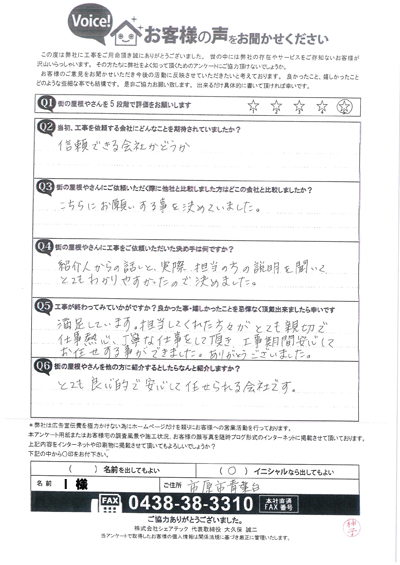 Voice!
お客様の声をお聞かせください
この度は弊社に工事をご用命頂き誠にありがとうございました。世の中には弊社の存在やサービスをご存知ないお客様が
沢山いらっしゃいます。その方たちに弊社をよく知って頂くためのアンケートにご協力頂けないでしょうか。
お客様のご意見をお聞かせいただき今後の活動に反映させていただきたいと考えております。良かったこと、嬉しかったこと
どのような些細な事でも結構です。是非ご協力お願い致します。出来るだけ具体的に書いて頂ければ幸いです。
Q1 街の屋根やさんを5段階で評価をお願いします ☆ ☆ ☆ ☆ ☆
Q2 当初、工事を依頼する会社にどんなことを期待されていましたか?
信頼できる会社かどうか
Q3 街の屋根やさんにご依頼いただく際に他社と比較しました方はどこの会社と比較しましたか?
こちらにお願いする事を決めていました。
Q4 街の屋根やさんに工事をご依頼いただいた決め手は何ですか?
紹介人からの話しと、実際、担当の方の説明を聞いて
とてもわかりやすかったので決めました。
Q5 工事が終わってみていかがですか?良かった事・嬉しかったことを忌憚なく頂戴出来ましたら幸いです
満足しています。担当してくれた方々がとても親切で
仕事熱心、丁寧な仕事をして頂き、工事期間安心して
お任せする事ができました。ありがとうございました。
Q6 街の屋根やさんを他の方に紹介するとしたらなんと紹介しますか?
とても良心的で安心して任せられる会社です。
*弊社は広告宣伝費を極力かけない為にホームページだけを頼りにお客様への営業活動を行っております。
本アンケート用紙またはお客様宅の調査風景や施工状況、お客様の顔写真を随時ブログ形式のインターネットに掲載させて頂いております。
上記内容をインターネットや印刷物に掲載させて頂いてもよろしいでしょうか?
下記の中から〇印をお付下さい。
( )名前を出してもよい (○)イニシャルなら出してもよい
名前 I 様 ご住所 市原市青葉台
FAX 0438-38-3310 本社直通 FAX番号
ご協力ありがとうございました。
株式会社シェアテック 代表取締役 大久保 誠二
当アンケートで取得したお客様の個人情報は関係法規に基づき厳正に管理いたします。